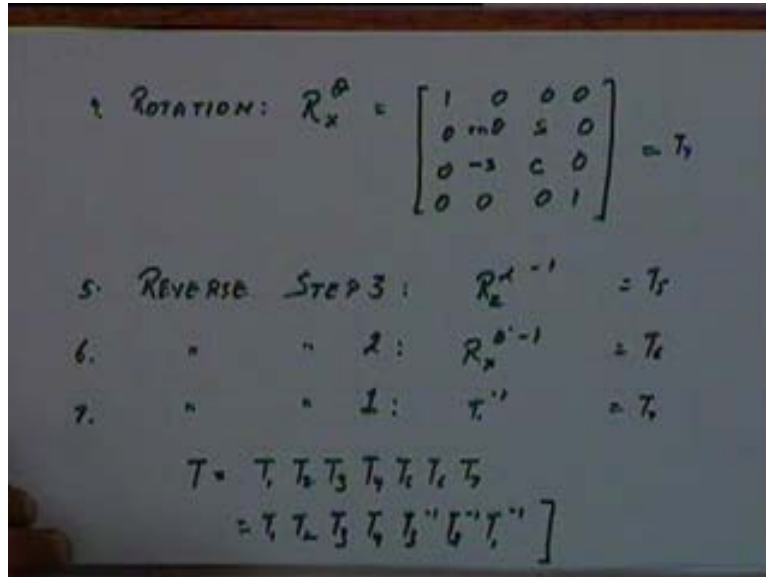 4. ROTATION: R_x^θ = [ 1 0 0 0
0 cosθ s 0
0 -s c 0
0 0 0 1 ] = T_4
5. REVERSE STEP 3: R_z^{α -1} = T_5
6. " " 2: = T_6
7. " " 1: T_1^{-1} = T_7
T = T_1 T_2 T_3 T_4 T_5 T_6 T_7
= T_1 T_2 T_3 T_4 T_3^{-1} T_2^{-1} T_1^{-1} ]